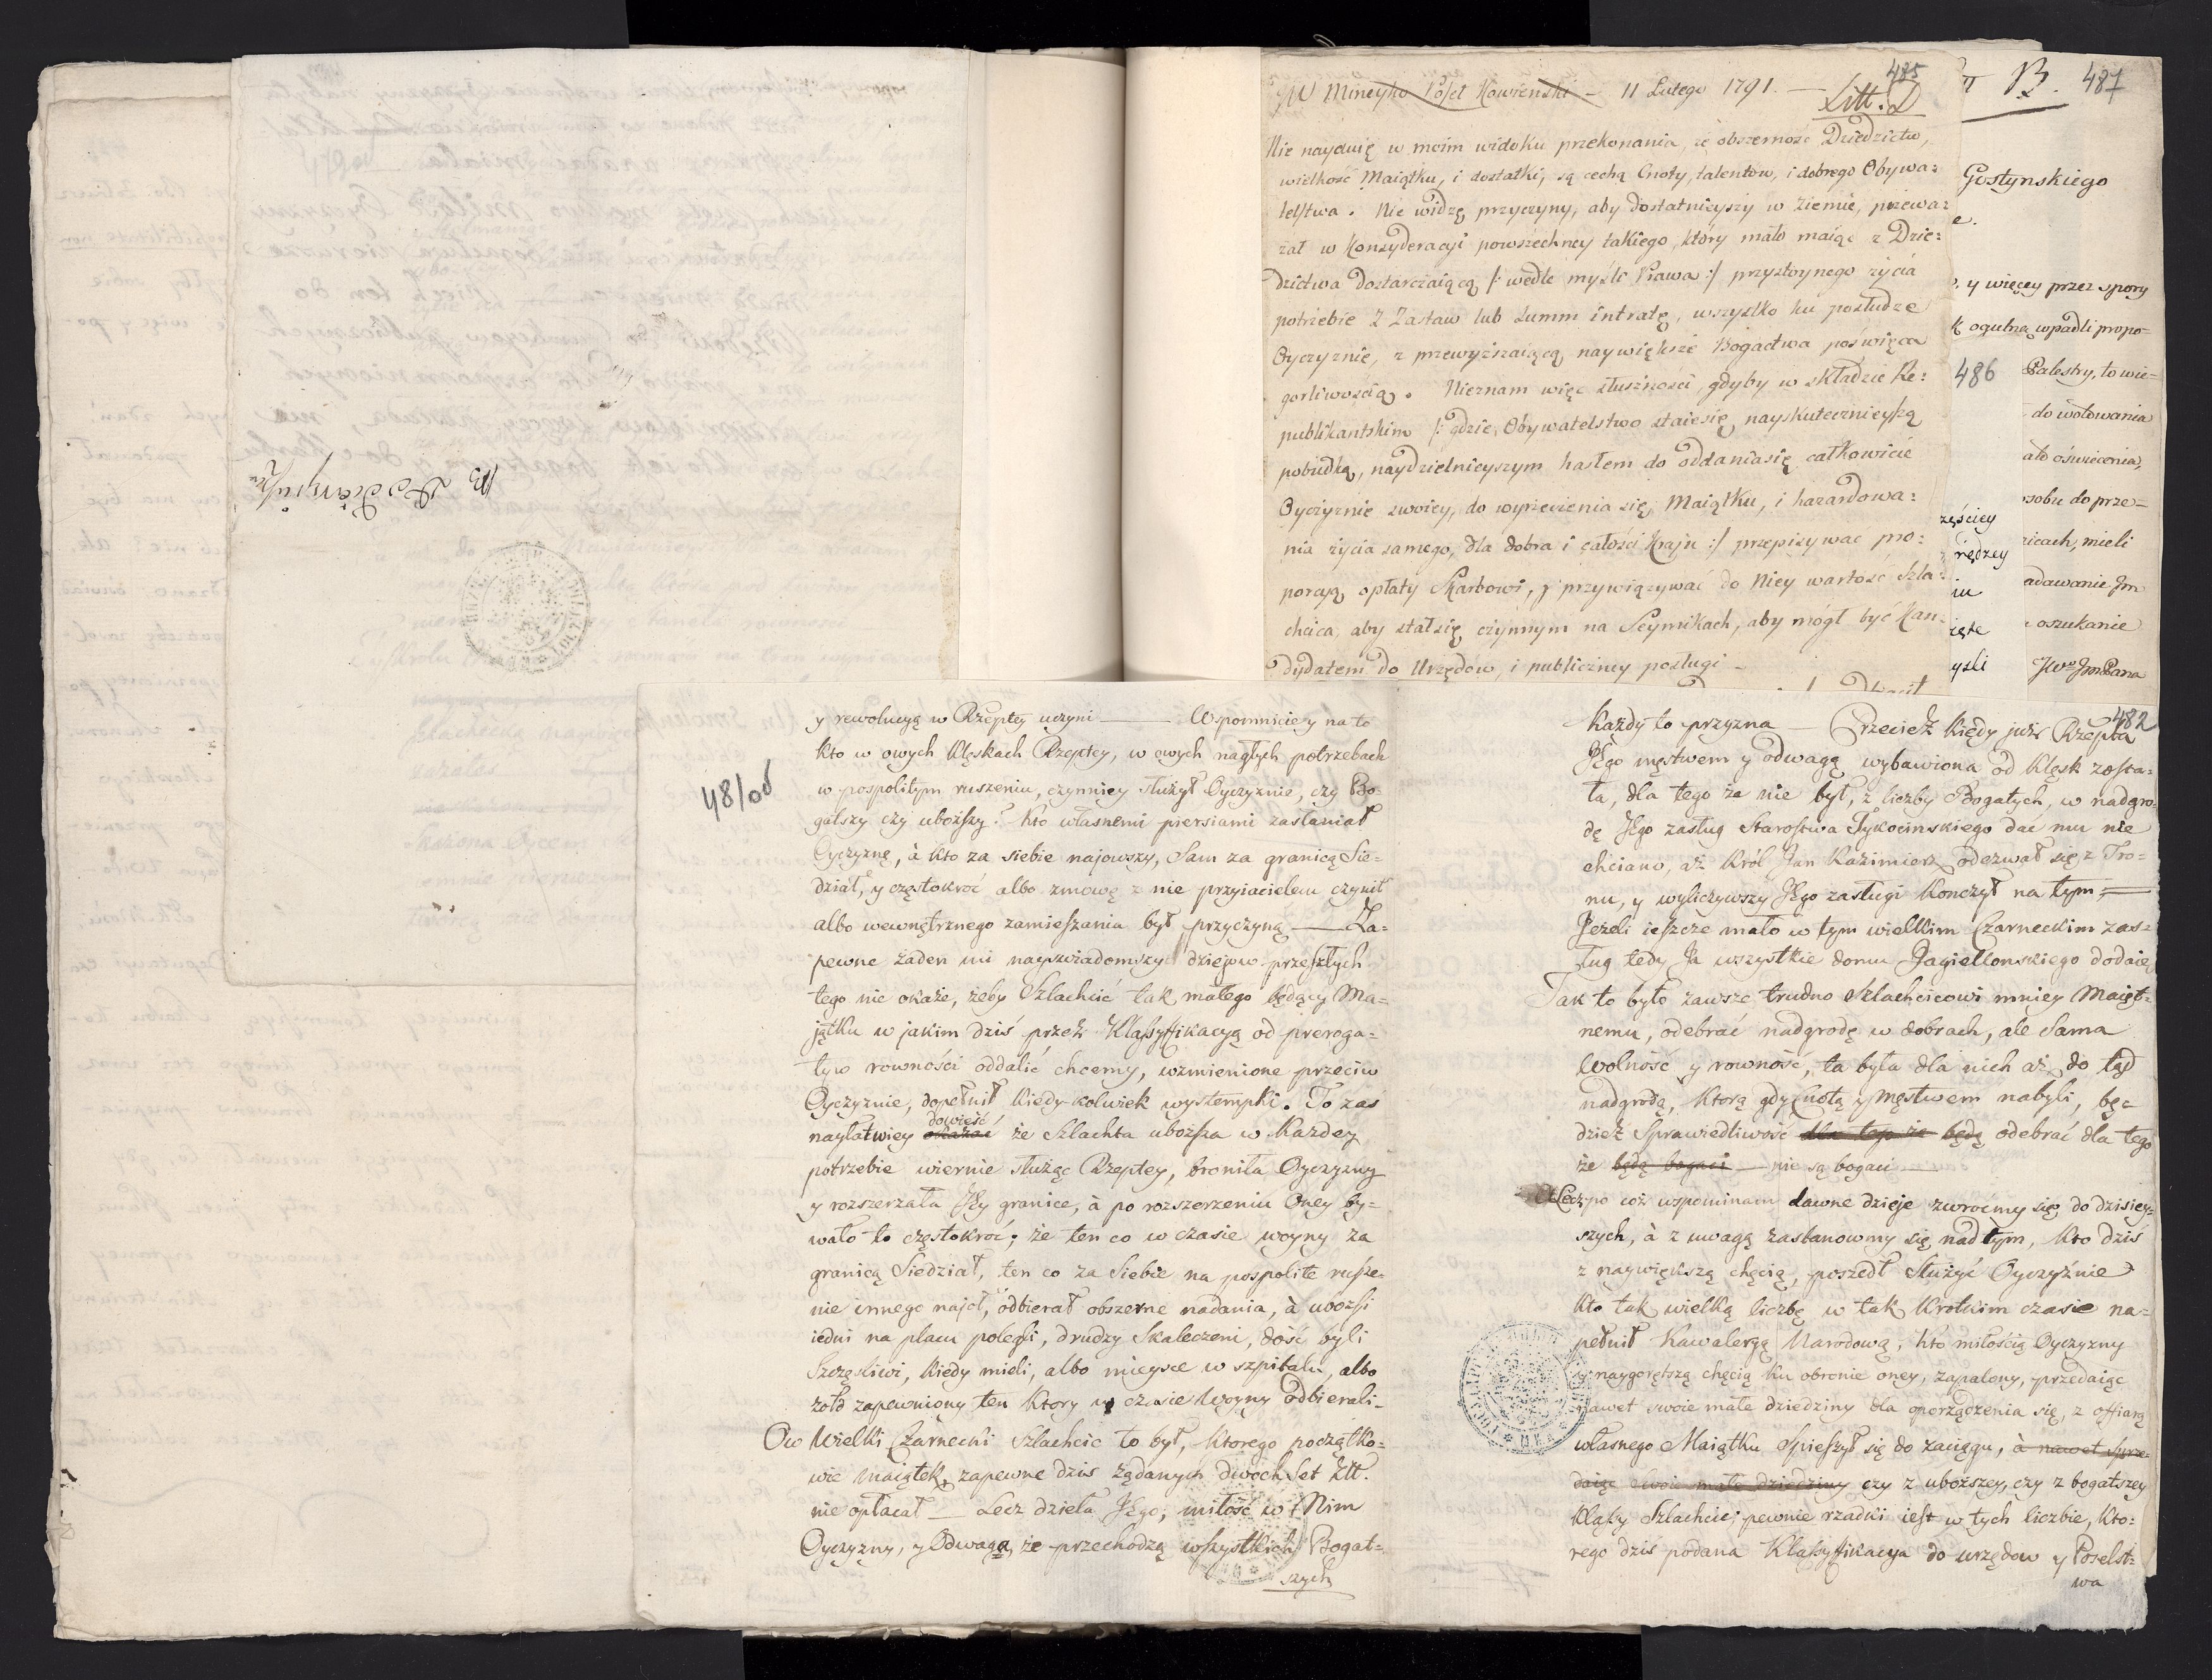 485
JW Mineyko Poseł Kowienski – 11 Lutego 1791. — Litt. D
Nie nayduię w moim widoku przekonania, że obszerność Dziedzictw,
wielkość Maiątku, i dostatki, są cechą Cnoty, talentow, i dobrego Obywa:
telstwa. Nie widzę przyczyny, aby dostatnieyszy w Ziemie, przewa:
żał w Konsyderacyi powszechney takiego, który mało maiąc z Dzie:
dzictwa dostarczaiącą /: wedle myśli Prawa :/ przystoynego życia
potrzebie z Zastaw lub Summ intratę, wszystko ku posłudze
Oyczyznie, z przewyższaiącą naywiększe Bogactwa poświęca
gorliwością. Nieznam więc słuszności, gdyby w składzie Re:
publikantskim /: gdzie Obywatelstwo staie się nayskutecznieyszą
pobudką, naydzielnieyszym hasłem do oddania się całkowicie
Oyczyznie swoiey, do wyrzeczenia się Maiątku, i hazardowa:
nia życia samego, dla dobra i całości Kraju :/ przepisywać pro:
porcyą opłaty Skarbowi, y przywiązywać do Niey wartość Szla:
chcica, aby stał się czynnym na Seymikach, aby mógł być Kan:
dydatem do Urzędów, i publiczney posługi –
B. 487
Gostynskiego
e.
y więcey przez spory
K ogulną wpadli propo=
486
Palestry, to wie=
do wotowania
ało oświecenia,
osobu do prze=
zęściey
icach, mieli
między
adawanie Jm
iu
oszukanie
ięte
yśli
JWo Jm Pana
Podczaszy
48/od
y rewolucyą w Rzeptey uczyni — Wspomnicie y na to
kto w owych klęskach Rzeptey, w owych nagłych potrzebach
w pospolitym ruszeniu, czynniey służył Oyczyznie, czy Bo-
gatszy czy uboższy? kto własnemi piersiami zasłaniał
Oyczyznę, à kto za siebie najowszy, Sam za granicą Sie=
dział, y częstokroć albo zmowę z nie przyiacielem czynił
albo wewnętrznego zamieszania był przyczyną — Za=
pewne żaden mi nayswiadomszy dziejow przeszłych
tego nie okaże, żeby Szlachcic tak małego będący Ma=
jątku w jakim dziś przez Klassyffikacyą od preroga=
tyw rowności oddalić chcemy, wzmienione przeciw
Oyczyznie, dopełnił kiedy kolwiek wystempki. To zas
nayłatwiey okazać dowieść że Szlachta uboższa w Każdey
potrzebie wiernie służąc Rzeptey, broniła Oyczyzny
y rozszerzała JEy granice, à po rozszerzeniu Oney by=
wało to częstokroć; że ten co w czasie woyny za
granicą Siedział, ten co za Siebie na pospolite rusze=
nie innego najoł, odbierał obszerne nadania, à uborsi
iedni na placu polegli, drudzy Skaleczeni, dość byli
Szczęsliwi, kiedy mieli, albo mieysce w szpitalu, albo
żołd zapewniony ten ktory w czasie Woyny odbierali –
Ow Wielki Czarnecki Szlachcic to był, ktorego początko=
wie maiątek, zapewne dzis żądanych dwoch Set Złł.
nie opłacał — Lecz dzieła JEgo, miłość w Nim
Oyczyzny, y Odwaga, że przechodzą wszystkich Bogat=
szych
482
Każdy to przyzna — Przecież kiedy już Rzepta
JEgo męstwem y odwagą wybawiona od klęsk zosta=
ła, dla tego że nie był, z liczby Bogatych, w nadgro=
dę JEgo zasług Starostwa Tykocinskiego dać mu nie
chciano, aż Król Jan Kazimierz odezwał się z Tro=
nu, y wyliczywszy JEgo zasługi kończył na tym: —
Jeżeli ieszcze mało w tym wielkim Czarneckim zas=
ług tedy Ja wszystkie domu Jagiellonskiego dodaię
Tak to było zawsze trudno Szlachcicowi mniey Maięt=
nemu, odebrać nadgrodę w dobrach, ale Sama
Wolność y rowność, ta była dla nich aż do tąd
nadgrodą, ktorą gdy Cnotą y Męstwem nabyli, bę=
dzież Sprawiedliwość dla tego że będą odebrać dla tego
że będą bogaci — nie są bogaci —
Lecz po coż wspominam dawne dzieje zwroćmy się do dzisiey=
szych, à z uwagą zastanowmy się nad tym, kto dziś
z naywiększą chęcią, poszedł Służyć Oyczyźnie
kto tak wielką liczbę w tak krotkim czasie na=
pełnił Kawaleryą Narodową, kto miłością Oyczyzny
y naygorętszą chęcią ku obronie oney, zapalony, przedaiąc
nawet swoie małe dziedziny dla oporządzenia się, z offiarą
własnego Maiątku Spieszył się do zaciągu, à nawet sprze=
daiąc swoie małe dziedziny czy z uboższey, czy z bogatszey
klassy Szlachcic; pewnie rzadki iest w tych liczbie, kto=
rego dziś podana Klassyffikacya do urzędow y Poselst=
wa